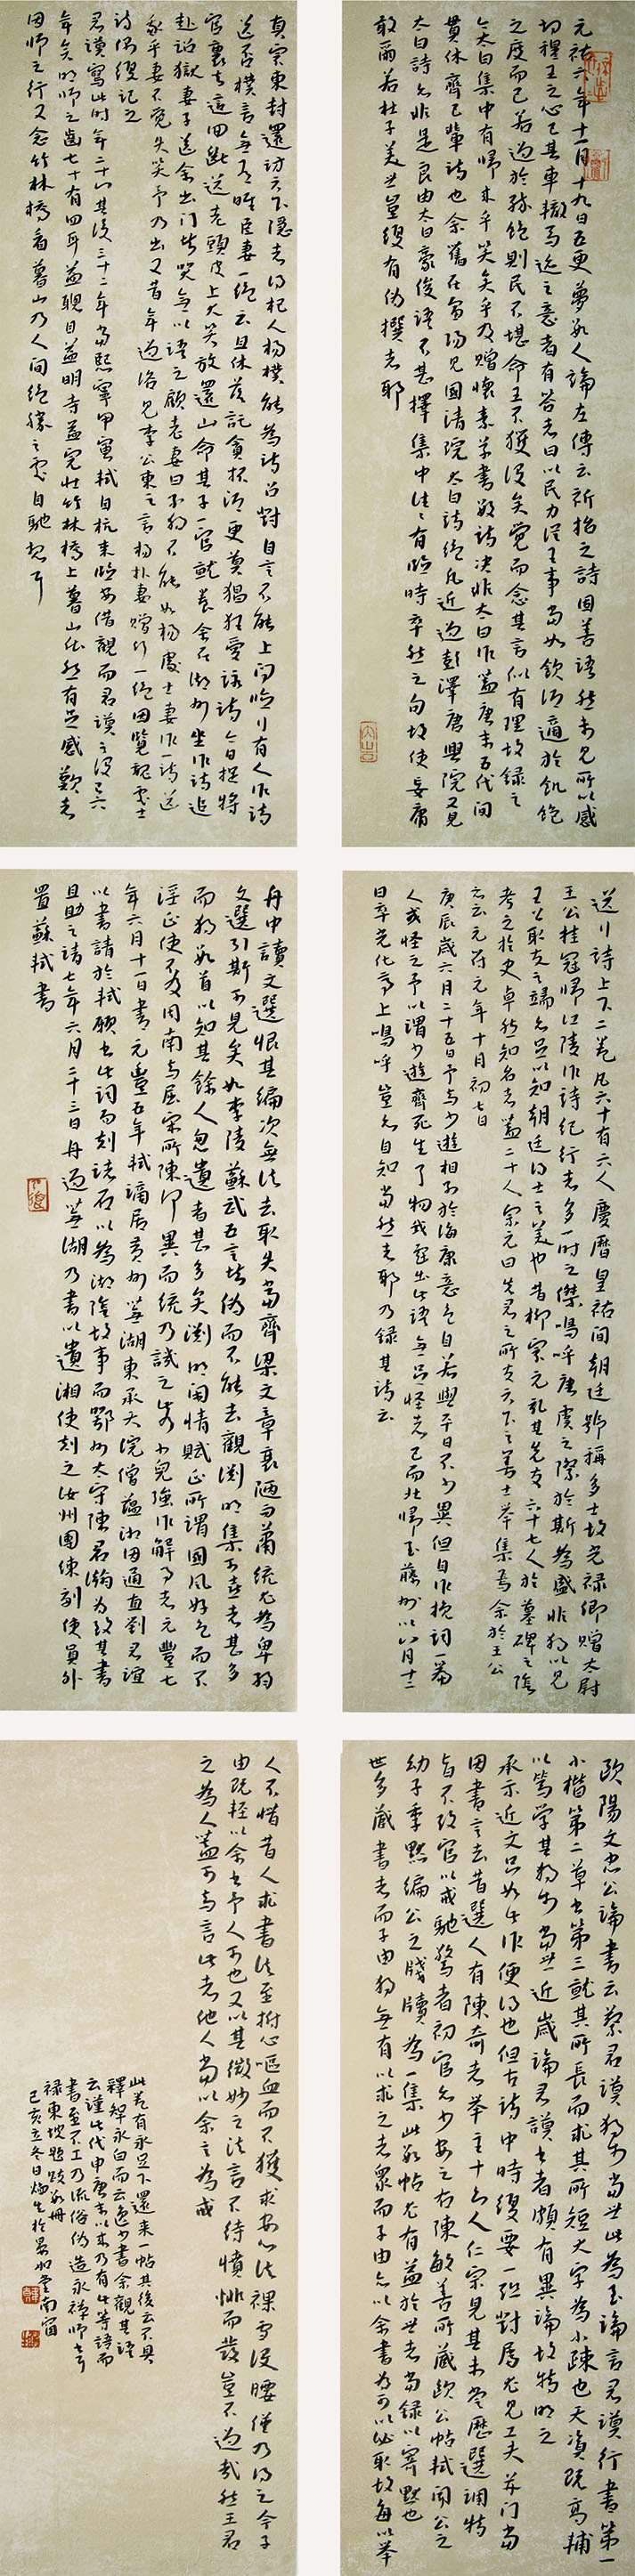 元祐六年十一月十九日五更夢數人論左傳云祈招之詩固善語然未見所以感
切穆王之心已其車轍馬迹之意者有答者曰以民力從王事當如飲酒適於飢飽
之度而已若過於醉飽則民不堪命王不獲沒矣覺而念其言似有理故録之
今太白集中有歸來乎笑矣乎及贈懷素草書數詩决非太白作蓋唐末五代間
貫休齊己輩詩也余舊在富陽見國清院太白詩絕凡近過彭澤唐興院又見
太白詩亦非是良由太白豪俊語不甚擇集中往々有臨時率然之句故使妄庸
敢爾若杜子美世豈復有偽撰者耶
真宗東封還訪天下隱者得杞人楊樸能為詩召對自言不能上問臨行有人作詩
送否樸言無有唯臣妻一絕云且休落託貪杯酒更莫猖狂愛詠詩今日捉將
官裏去這回斷送老頭皮上大笑放還山命其子一官就養余在湖州坐作詩追
赴詔獄妻子送余出門皆哭無以語之顧老妻曰子獨不能如楊處士妻作一詩送
我乎妻不覺失笑予乃出又昔年過洛見李公柬之言楊朴妻贈行一絕因覽魏處士
詩偶復記之
君謨寫此時年二十八其後三十二年當熙寧甲寅軾自杭來臨安借觀而君謨之沒已六
年矣明師之齒七十有四耳益聰目益明寺益完壯竹林橋上暮山依然有足感歎者
因師之行又念竹林橋看暮山乃人間絕勝之處自馳想耳
送行詩上下二卷凡六十有六人慶曆皇祐間朝廷號稱多士故光禄卿贈太尉
王公挂冠歸江陵作詩紀行者多一時之傑嗚呼唐虞之際於斯為盛非獨以見
王公取友之端亦足以知朝廷得士之美也昔柳宗元記其先友六十七人於墓碑之陰
考之於史卓然知名者蓋二十人宗元曰先君之所友天下之善士舉集焉余於王公
亦云元符元年十月初七日
庚辰歲六月二十五日予與少遊相別於海康意色自若與平日不少異但自作挽詞一篇
人或怪之予以謂少遊齊死生了物我戲出此語無足怪者已而北歸至藤州以八月十二
日卒光化亭上嗚呼豈亦自知當然者耶乃録其詩云
舟中讀文選恨其編次無法去取失當齊梁文章衰陋而蕭統尤為卑弱
文選引斯可見矣如李陵蘇武五言皆偽而不能去觀淵明集可喜者甚多
而獨取數首以知其餘人忽遺者甚多矣淵明閑情賦正所謂國風好色而不
淫正使不及周南與屈宋所陳何異而統乃譏之此乃小兒強作解事者元豐七
年六月十一日書元豐五年軾謫居黃州蕪湖東承天院僧蘊湘因通直劉君誼
以書請於軾願書此詞而刻諸石以為湖陰故事而鄂州太守陳君瀚為致其書
且助之請七年六月二十三日舟過蕪湖乃書以遺湘使刻之汝州團練副使員外
置蘇軾書
歐陽文忠公論書云蔡君謨獨步當世此為至論言君謨行書第一
小楷第二草書第三就其所長而求其所短大字為小疎也天資既高輔
以篤學其獨步當世近歲論君謨書者頗有異論故特明之
承示近文只如此作便得也但古詩中時復要一聯對屬尤見工夫并門當
因書言去昔選人有陳奇者舉主十六人仁宗見其未嘗歷選調特
旨不改官以戒馳騖者初官亦少安之右陳敏善所藏歐公帖軾聞公之
幼子季默編公之牋牘為一集此數帖尤有益於世者當録以寄默也
世多藏書者而子由獨無有以求之者眾而子由亦以余書為可以必取故每以舉
人不惜昔人求書法至拊心嘔血而不獲求安心法裸雪沒腰僅乃得之今子
由既輕以余書予人可也又以其微妙之法言不待憤悱而發豈不過哉然王君
之為人蓋可與言此者他人當以余言為戒
此卷有永足下還來一帖其後云不具
釋智永白而云逸少書余觀其語
云謹此代申唐末以來乃有此等語而
書至不工乃流俗偽造永禪師書耳
禄東坡題跋數冊
己亥立冬日 於 堂南窗